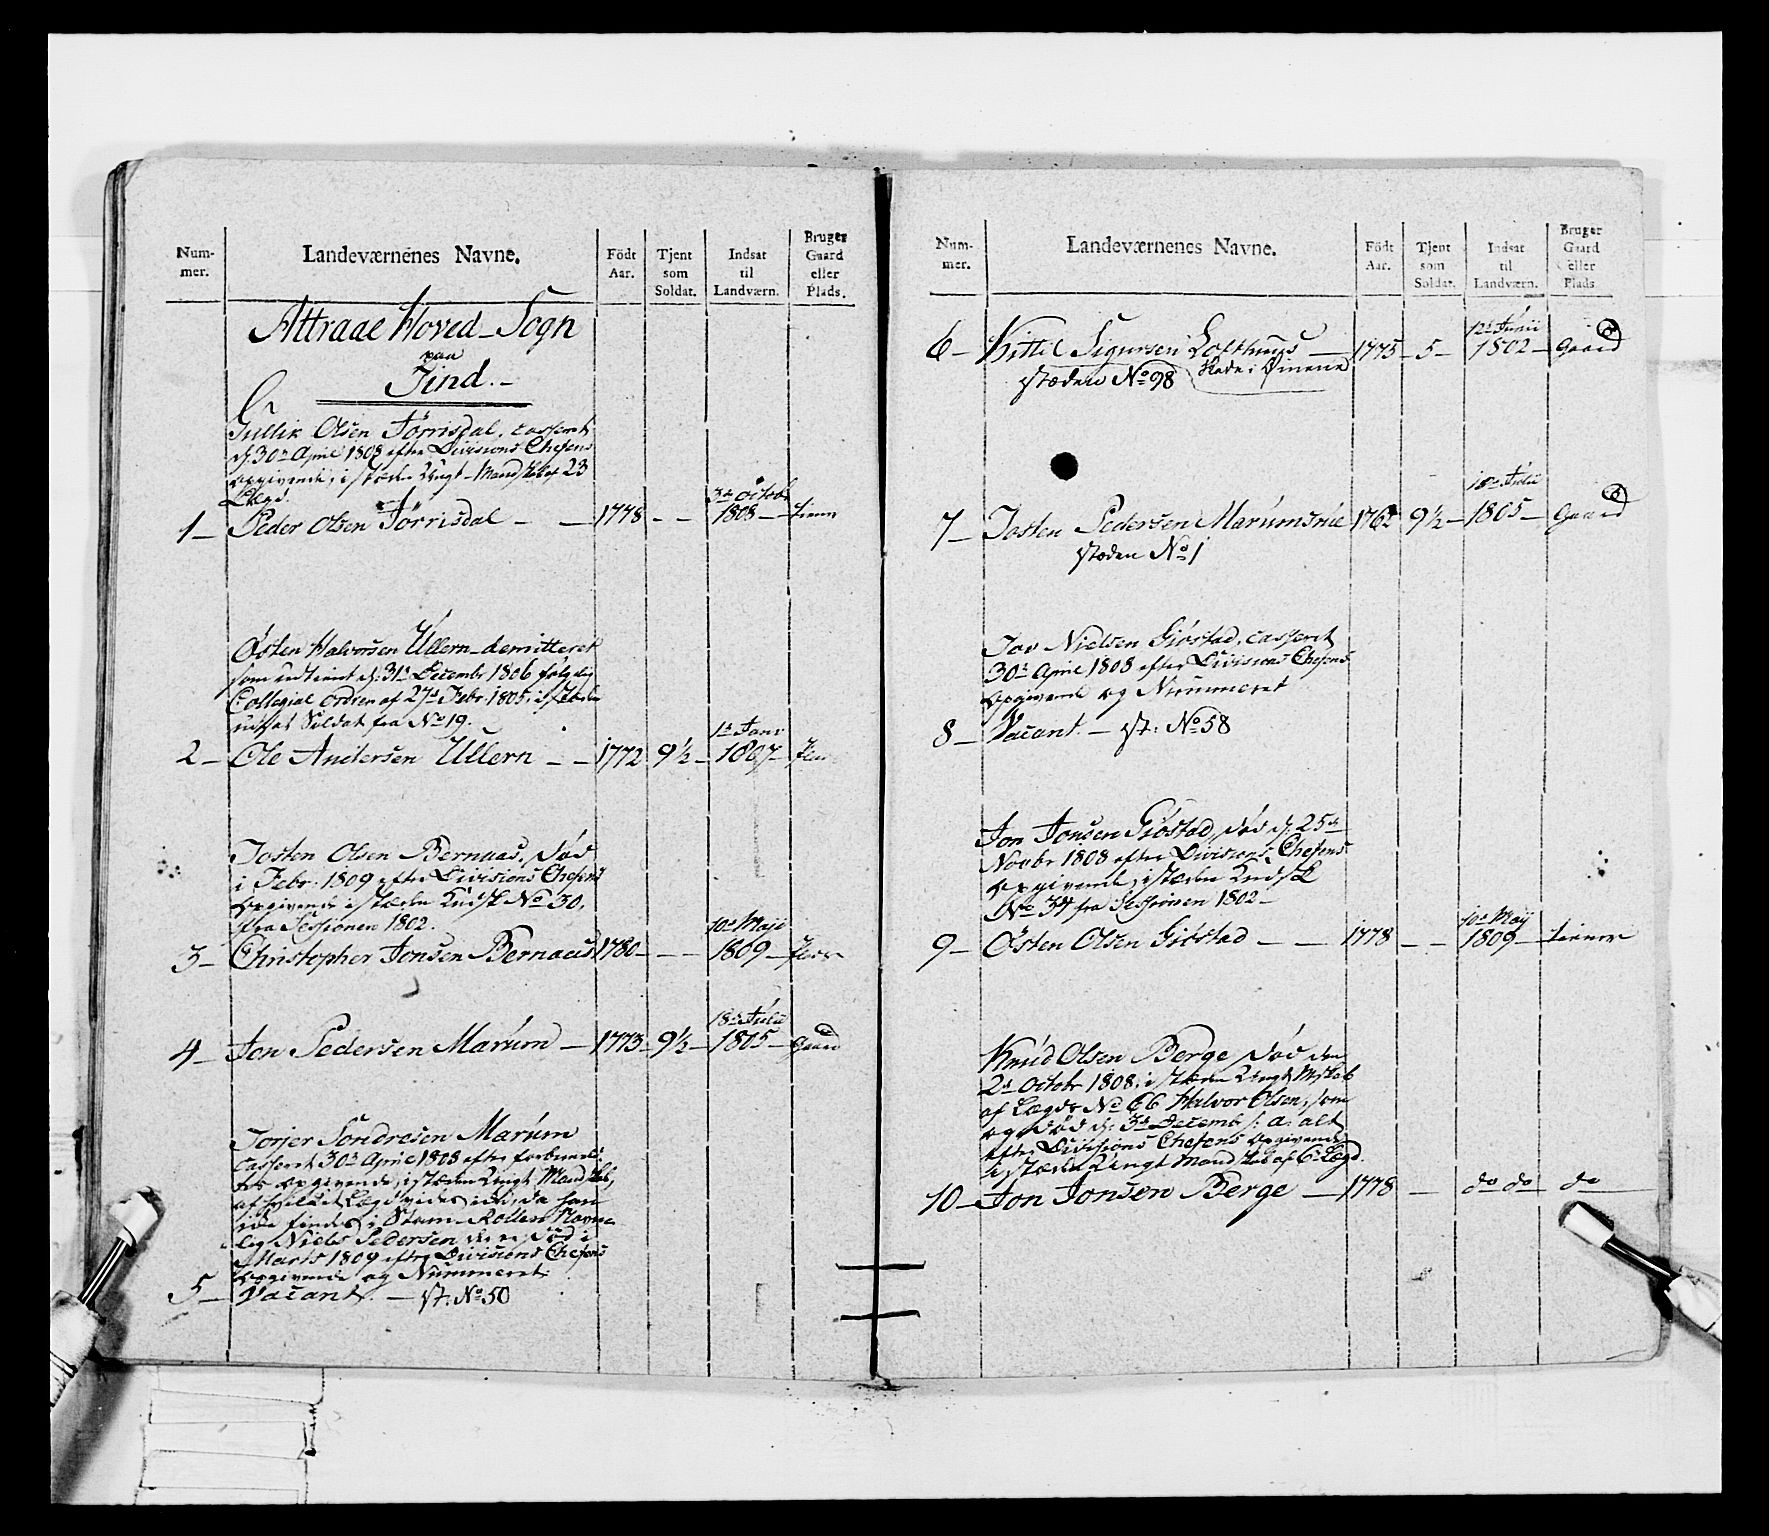 Num-
mer.
Landeværnenes Navne.
Födt
Aar.
Tjent
som
Soldat.
Indsat
til
Landværn.
Bruger
Gaard
eller
Plads.
Attraae Hoved-Sogn
paa
Tind.-
Gullik Olsen Jörrisdal, casseret
d. 30te April 1808 efter Divisions Chefens
opgivende; i stæden Ungt-Mandskab af 23
Lægd.
1- Peder Olsen Jörrisdal - - 1778 - - 3de Octobr 1808 - tiener
Østen Halvorsen Ullern demitteret
som udtient d: 31te Decembr 1806 følgelig
Collegial Ordren af 27de Febr. 1805; i stæden
udsat Soldat fra No 19.
2- Ole Andersen Ullern - - 1772 9½ - 1te Janr 1807
Josten Olsen Bernaas, død
i Febr: 1809 efter Divisions Chefens
opgivende i stæden Enrs. No 30,
fra Sessionen 1802.
3- Christopher Jonsen Bernaas 1780 - - - 10de Maji 1809 -
4- Jon Pedersen Marúm - 1773 - 9½ - 18de Julii 1805 - Gaard
Torjer Sondresen Marúm
casseret 30te April 1808 efter forbemel-
opgivende, i stæden Ungt Mandskab,
af hvilket Lægd vides ikke, da han
ikke findes i Stam-Rollen Navn-
lig Niels Pedersen der er død i
Marts 1809 efter Divisions Chefens
opgivende og Nummeret
5- Vacant. - st: No 50
Num-
mer.
Landeværnenes Navne.
Födt
Aar.
Tjent
som
Soldat.
Indsat
til
Landværn.
Bruger
Gaard
eller
Plads.
6- Kittil Sigursen Lofthuus - 1775 - 5 - 12te Junii 1802 - Gaard
stæden No 98
7- Josten Pedersen Marúmsnie 1762 9½ - 18de Julii 1805 - Gaard
stæden No 1
Jov Nielsen Giøstad, casseret
30te April 1808 efter Divisions Chefens
opgivende og Nummeret
8- Vacant. - st: No 58
Jon Jonsen Giøstad, død d: 25de
Novbr 1808 efter Divisions Chefens
opgivende, i stæden
No 34 fra Sessionen 1802-
9- Østen Olsen Giøstad - - 1778 - - 10de Maji 1809 - tiener
Knúd Olsen Berge død den
2de Octobr 1808; i stæden Ungt Mskab
af Lægds No 66 Halvor Olsen, som
og død d: 3de Decemb: s: a: alt
efter Divisions Chefens opgivende
i stæden Ungt Mandskab af 6te Lægd.
10- Jon Jonsen Berge - 1778 - do do do